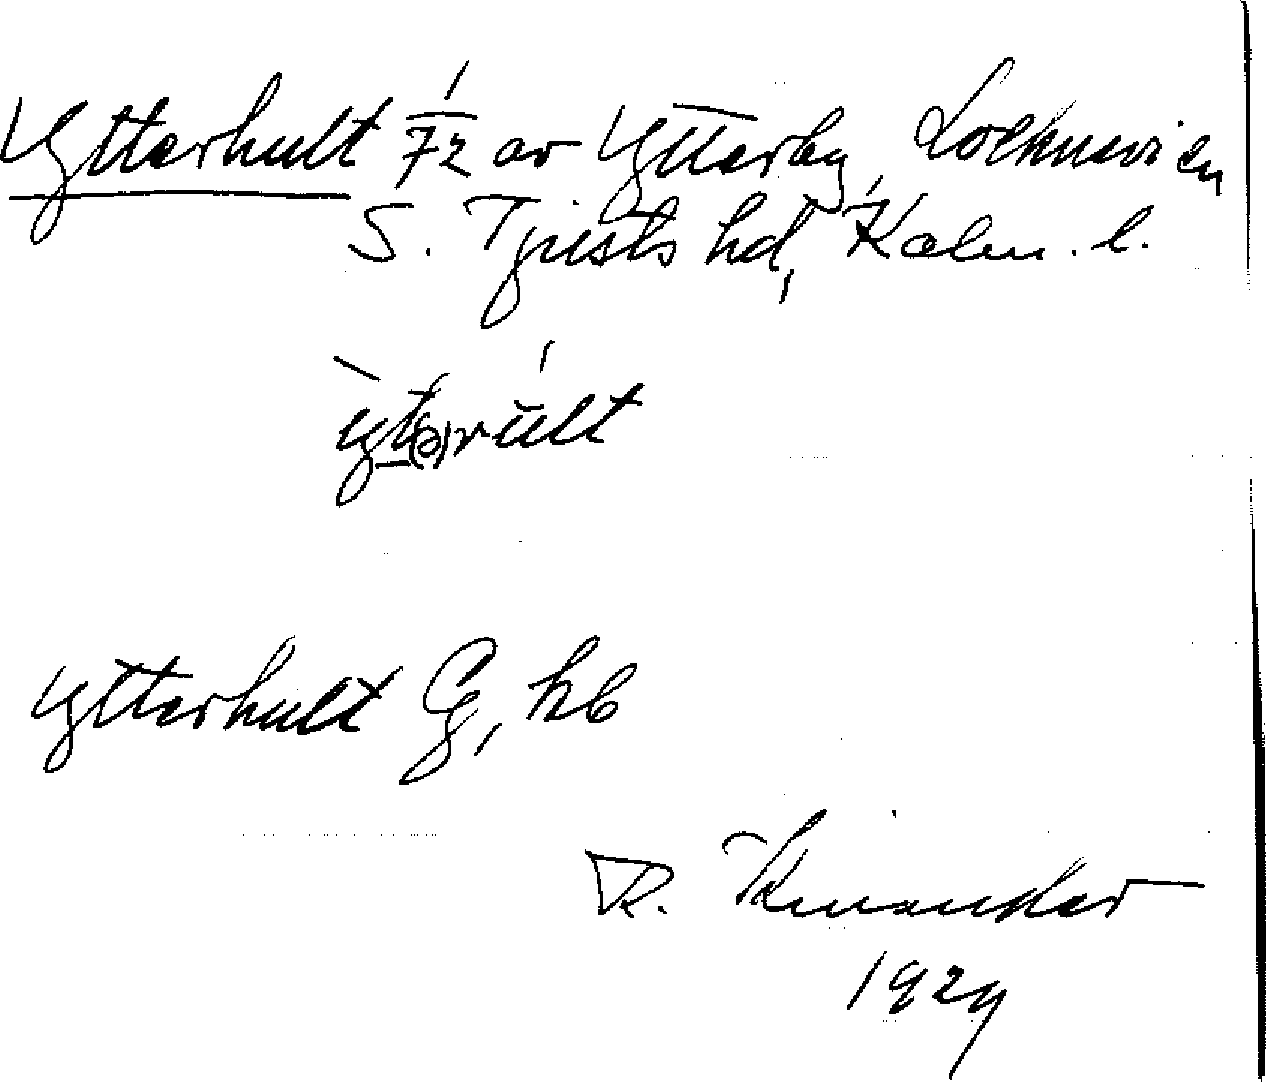 Ytterhult 1/72 av Ytterby, Locknevi sn
S. Tjusts hd, Kalm. l.
ỳt(e)rúlt
Ytterhult G, kb
R. Kinander
1929